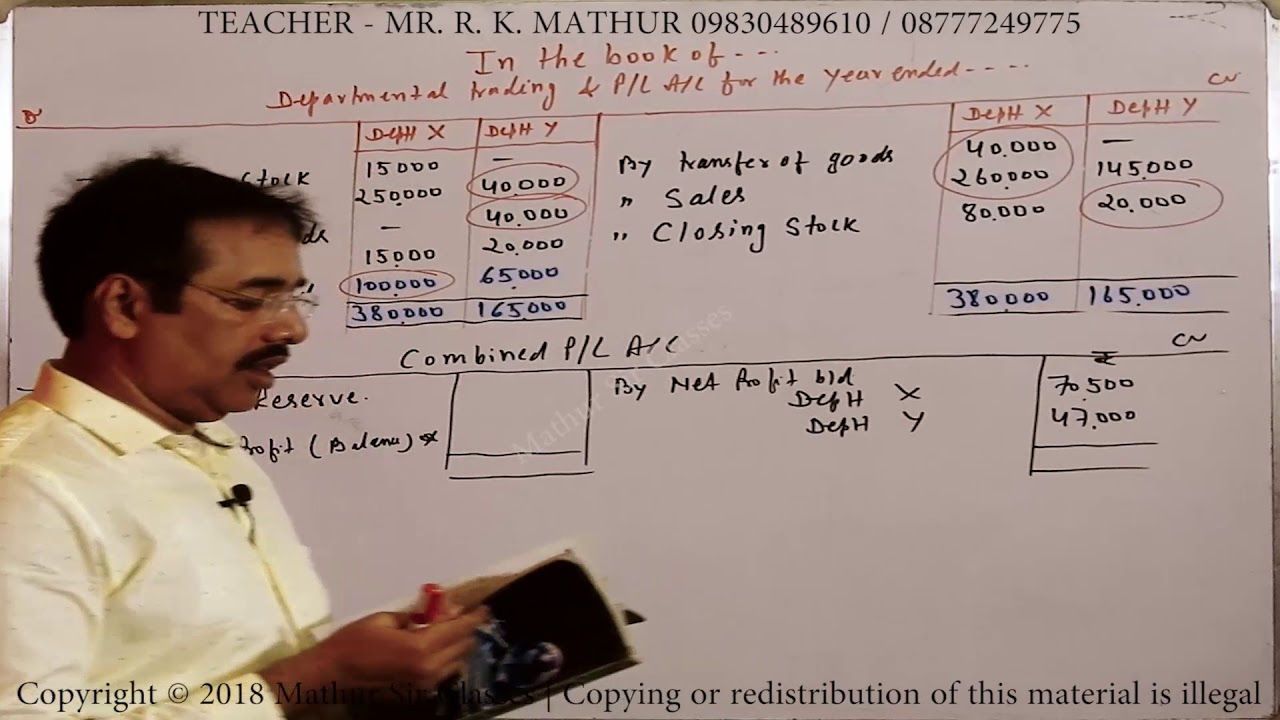 TEACHER - MR. R. K. MATHUR 09830489610 / 08777249775
In the book of - - -
Departmental trading & P/L A/C for the year ended - - - -
Dr Cr
Deptt X Deptt Y Deptt X Deptt Y
15000 — By transfer of goods 40,000 —
stock 250,000 40,000 " Sales 260,000 145,000
40,000 " Closing Stock 80,000 20,000
ds —
15000 20,000
100,000 65,000
380,000 165,000 380,000 165,000
Combined P/L A/C Cr
Reserve. By Net Profit b/d ₹
Deptt X 70,500
rofit (Balance) Deptt Y 47,000
Mathur Sir Classes
Copyright © 2018 Mathur Sir Classes | Copying or redistribution of this material is illegal